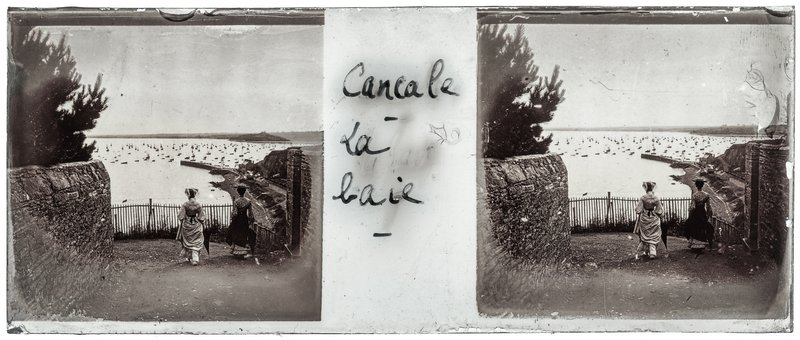 Cancale
-
La
baie
-